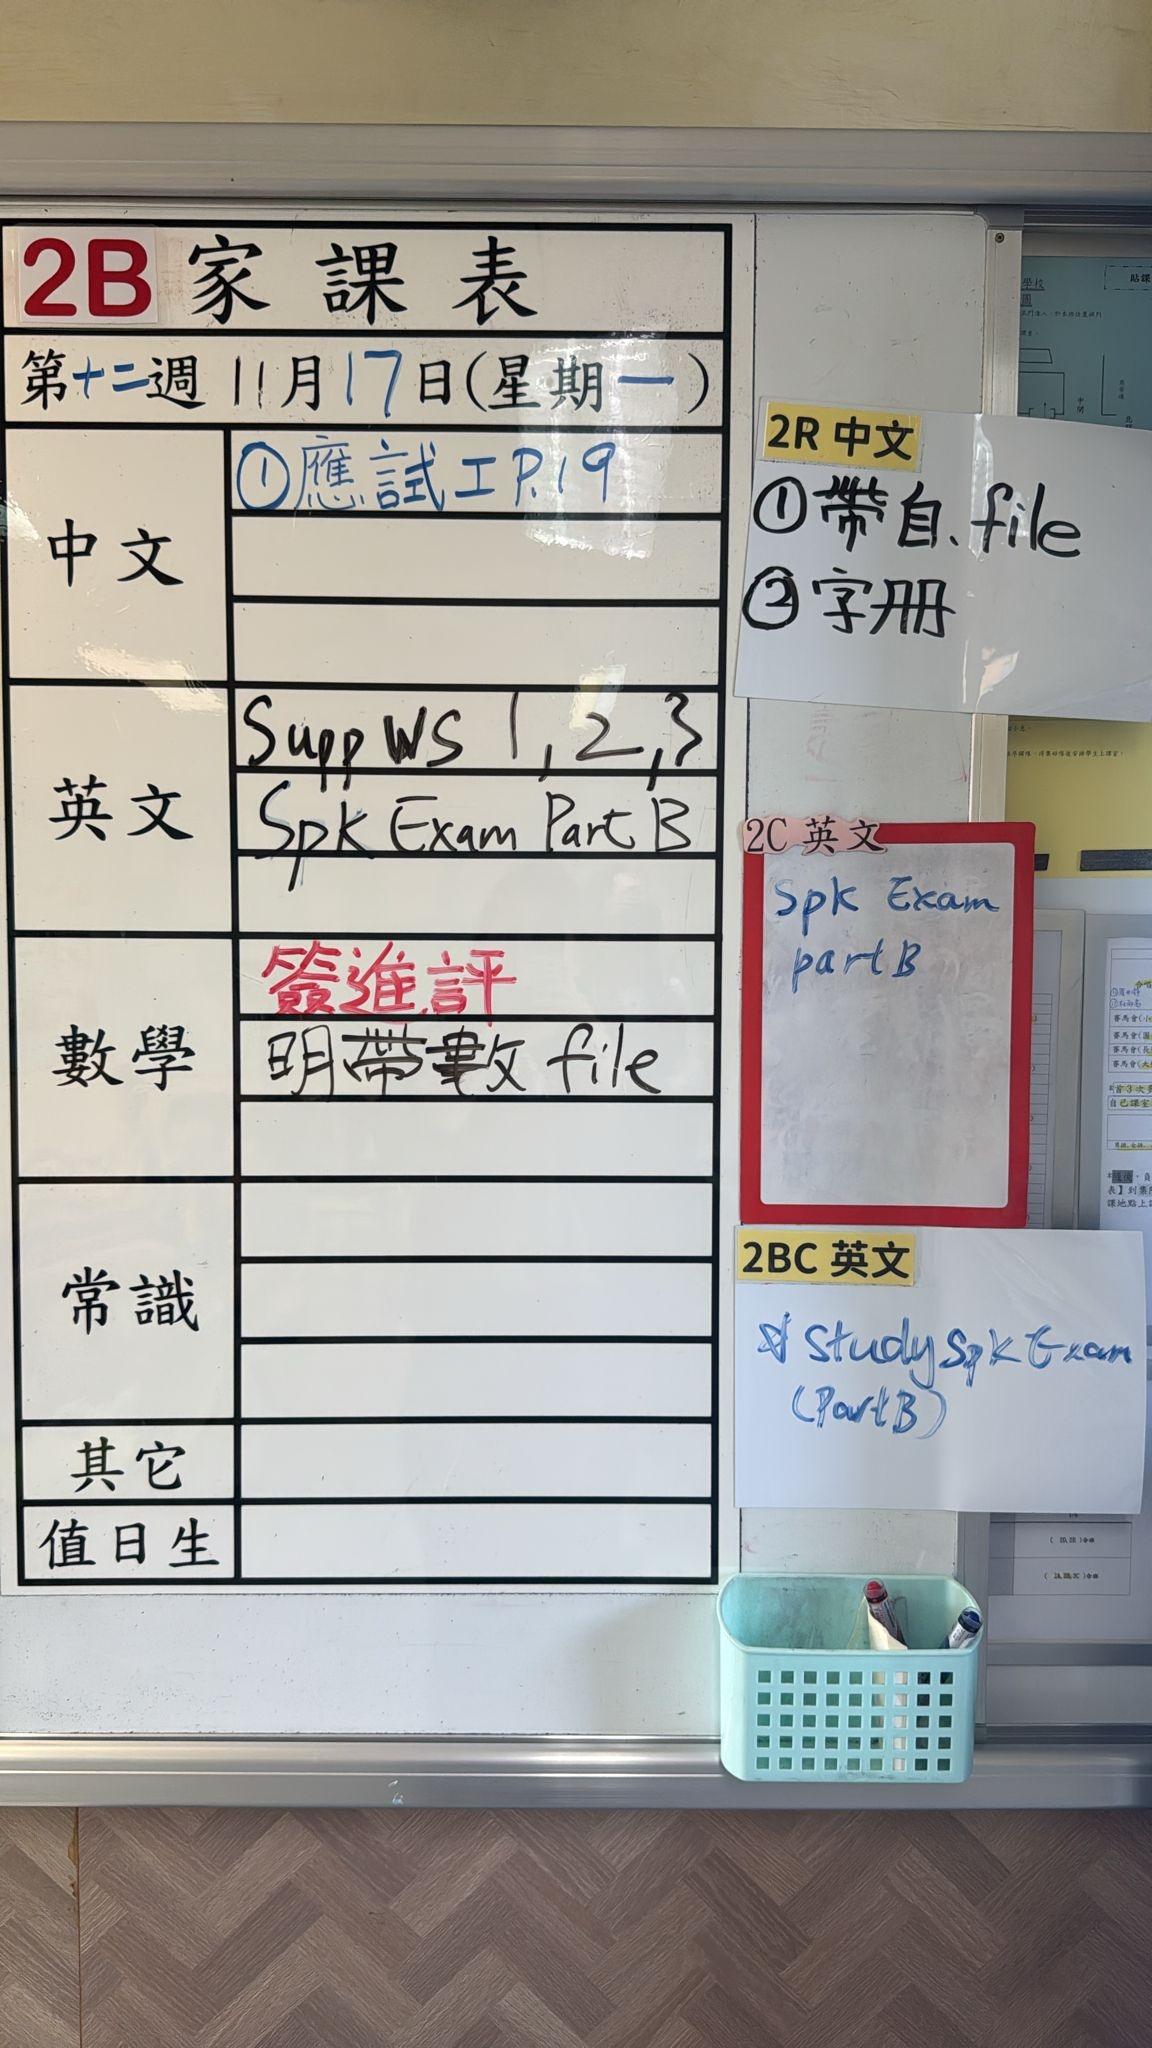 2B 家課表
第十二週 11月17日(星期一)
中文
①應試工P.19
英文
Supp WS 1,2,3
Spk Exam Part B
數學
簽進評
明帶數file
常識
其它
值日生
2R 中文
①帶自、file
②字册
2C 英文
Spk Exam
part B
2BC 英文
Study Spk Exam
(Part B)
貼課
學校
中閘